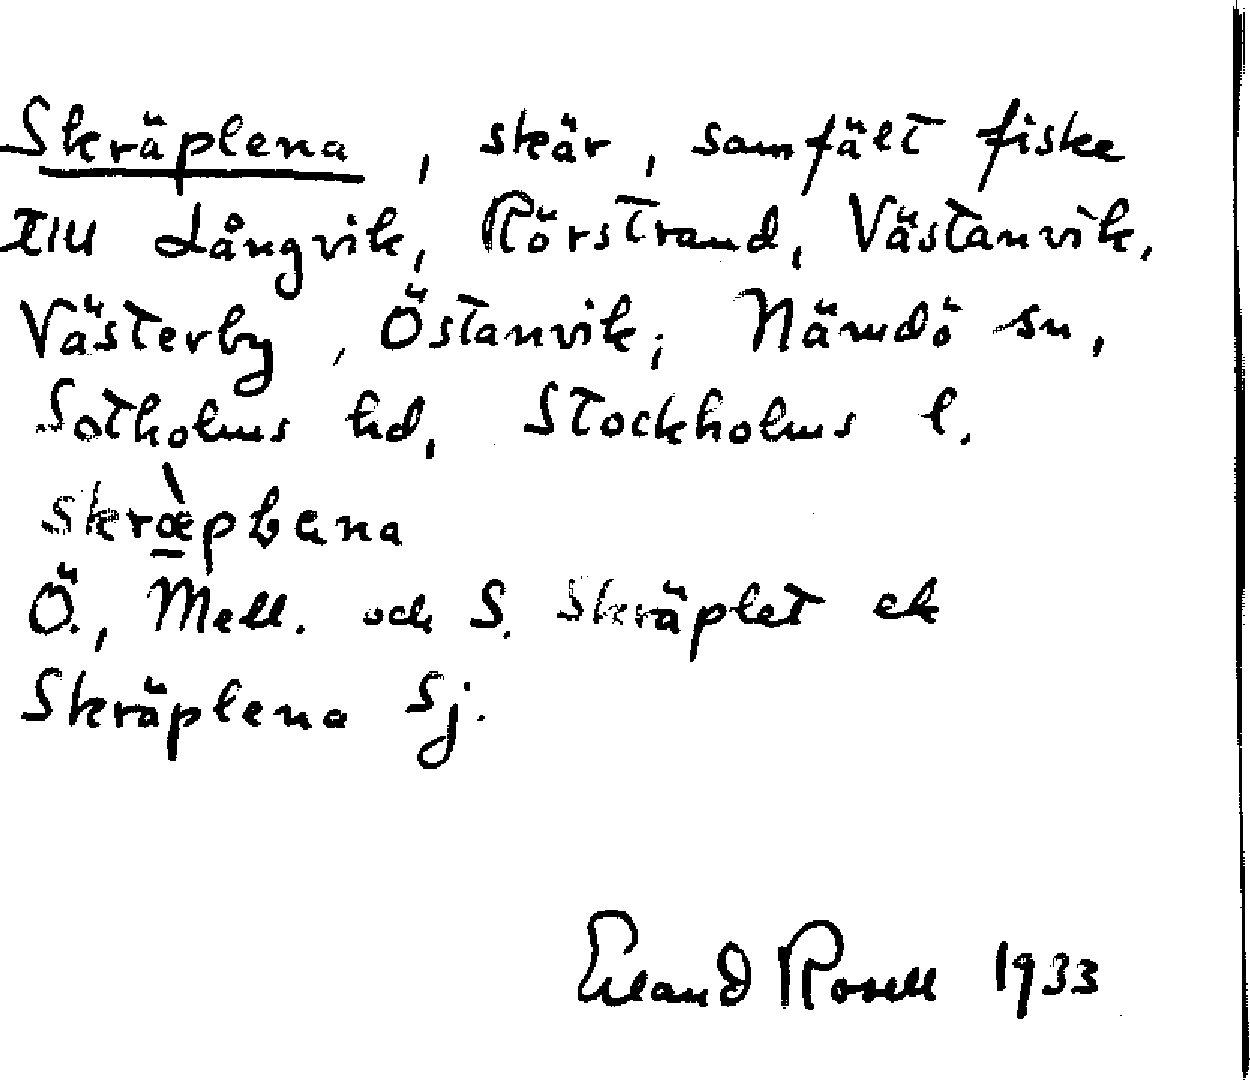 Skräplena, skär, samfält fiske
till Långvik, Rörstrand, Västanvik,
Västerby, Östanvik; Nämdö sn,
Sotholms hd, Stockholms l.
skræ̀plena
Ö., Mell. och S. Skräplet ek
Skräplena Sj.
Erland Rosell 1933